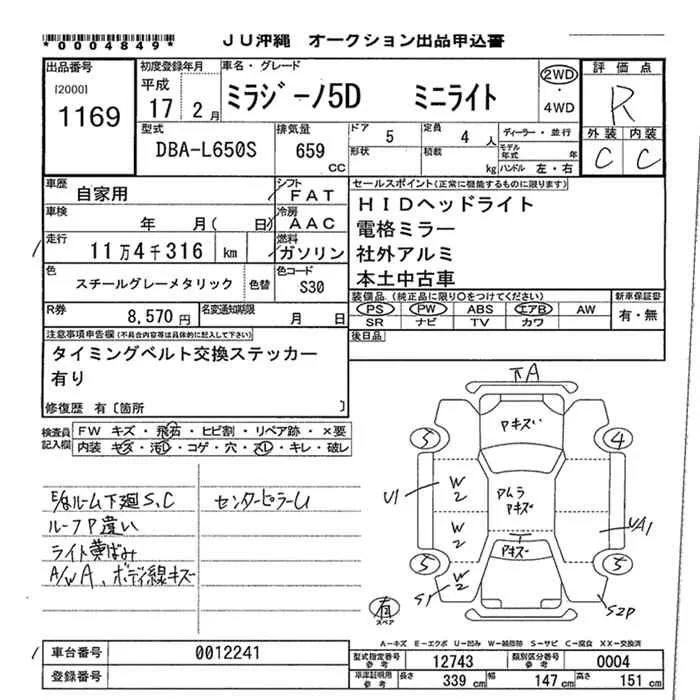 *0004849* JU沖縄 オークション出品申込書
出品番号 [2000] 1169
初度登録年月 平成 17 2月
車名・グレード ミラジーノ5D ミニライト
2WD ・4WD
評価点 R
外装 内装 C C
型式 DBA-L650S
排気量 659 CC
ドア 5 定員 4 人
形状 積載 kg
ディーラー・並行
モデル年式 年
ハンドル 左・右
車歴 自家用
シフト FAT
車検 年 月( 日)
冷房 AAC
走行 11万4千316 km
燃料 ガソリン
色 スチールグレーメタリック 色替
色コード S30
R券 8,570円
名変通知期限 月 日
セールスポイント(正常に機能するものに限ります)
HIDヘッドライト
電格ミラー
社外アルミ
本土中古車
装備品 (純正品に限り○をつけてください)
PS PW ABS エアB AW
SR ナビ TV カワ
新車保証書 有・無
後日品
注意事項申告欄(不具合内容等は具体的に記入して下さい)
タイミングベルト交換ステッカー
有り
修復歴 有〔箇所 〕
検査員記入欄
FW キズ・飛石・ヒビ割・リペア跡・×要
内装 キズ・汚レ・コゲ・穴・スレ・キレ・破レ
ルーム下廻S、C
センターピラーU
ルーフP違い
ライト黄ばみ
A/WA、ボディ線キズ
A
Pキズ
5 4
U1
W2
W2
W2
Pキズ
Pキズ
UA1
5 5
S1
S2P
有 スペア
A-キズ E-エクボ U-凹み W-補修跡 S-サビ C-腐食 XX-交換済
車台番号 0012241
登録番号
型式指定番号 参考 12743
類別区分番号 参考 0004
車庫証明用 参考 長さ 339 cm 幅 147 cm 高さ 151 cm